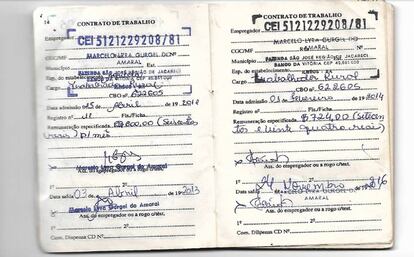 14
CONTRATO DE TRABALHO
Empregador
CEI 5121229208/81
CGC/MF
MARCELO LYRA GURGEL DO
AMARAL
Município
FAZENDA SÃO JOSÉ REGIÃO DE JACARECI
Esp. do estabelecimento
Cargo Trabalhador Rural
CBO nº 622605
Data admissão 03 de Abril de 19 2012
Registro nº 11 Fls/Ficha
Remuneração especificada (Seiscentos
reais) p/mês
Marcelo Lyra Gurgel do Amaral
Ass. do empregador ou a rogo c/test.
1º 2º
Data saída 03 de Abril de 19 2013
Marcelo Lyra Gurgel do Amaral
Ass. do empregador ou a rogo c/test.
1º 2º
Com. Dispensa CD Nº
CONTRATO DE TRABALHO
Empregador
CEI 5121229208/81
MARCELO LYRA GURGEL DO
CGC/MF
AMARAL
FAZENDA SÃO JOSÉ REGIÃO DE JACARECI
Município
BANDO DA VITÓRIA CEP
Esp. do estabelecimento
Cargo Trabalhador Rural
CBO nº 622605
Data admissão de 19 2014
Registro nº Fls/Ficha
Remuneração especificada R$ 724,00 (setecentos
e vinte quatro reais)
Ass. do empregador ou a rogo c/test.
1º 2º
Data saída 24 de Novembro de 19 2016
MARCELO LYRA GURGEL DO
AMARAL
Ass. do empregador ou a rogo c/test.
1º 2º
Com. Dispensa CD Nº